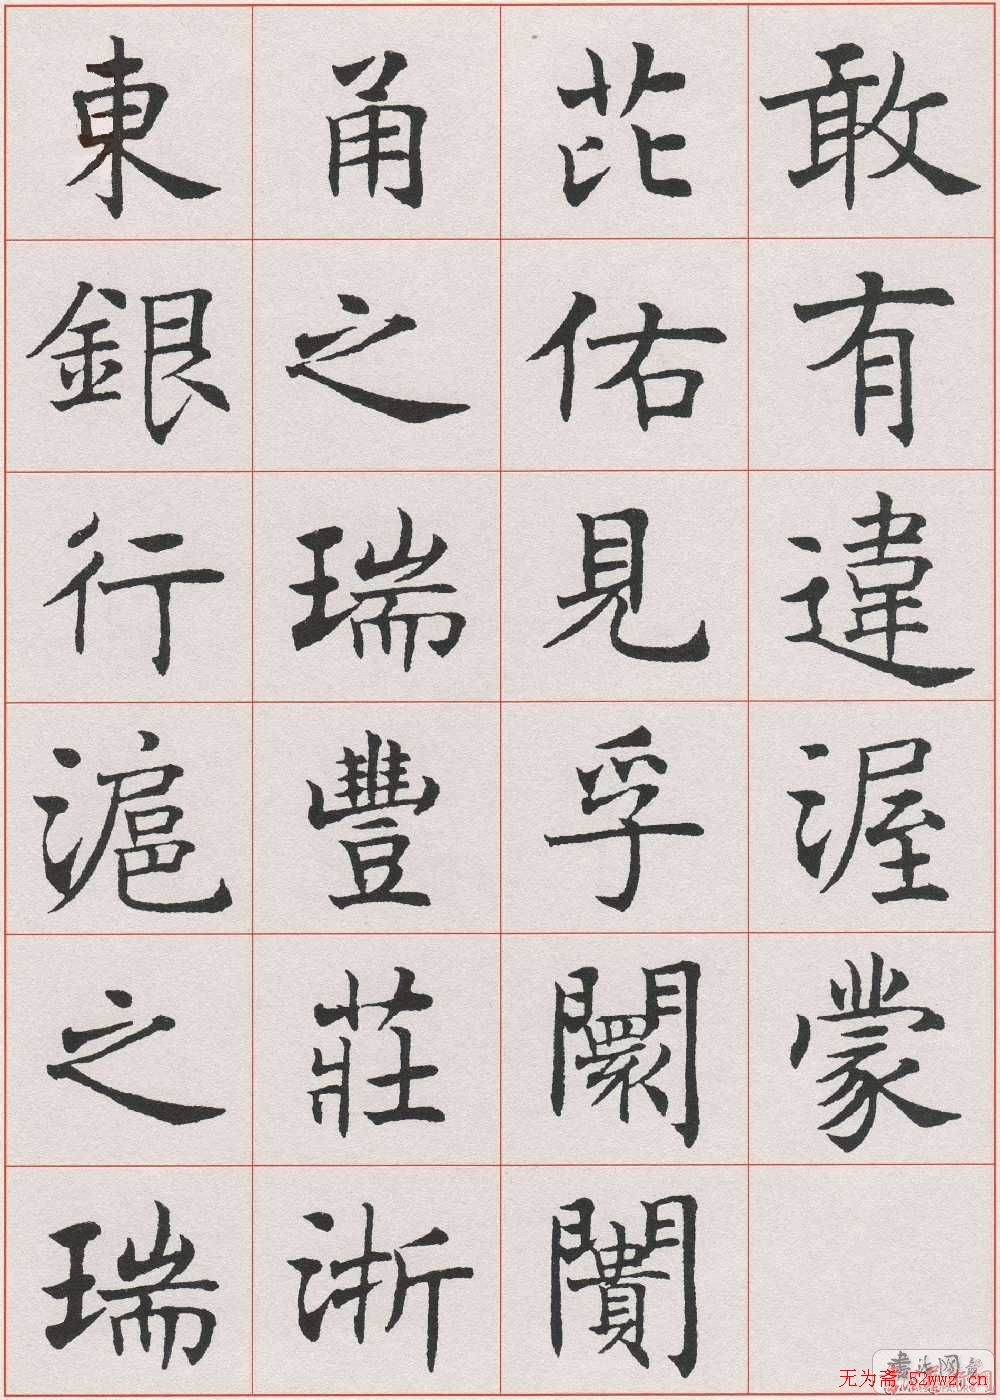 敢有違渥蒙
芘佑見孚闤闠
甬之瑞豐莊浙
東銀行滬之瑞
无为斋 52wwz.cn